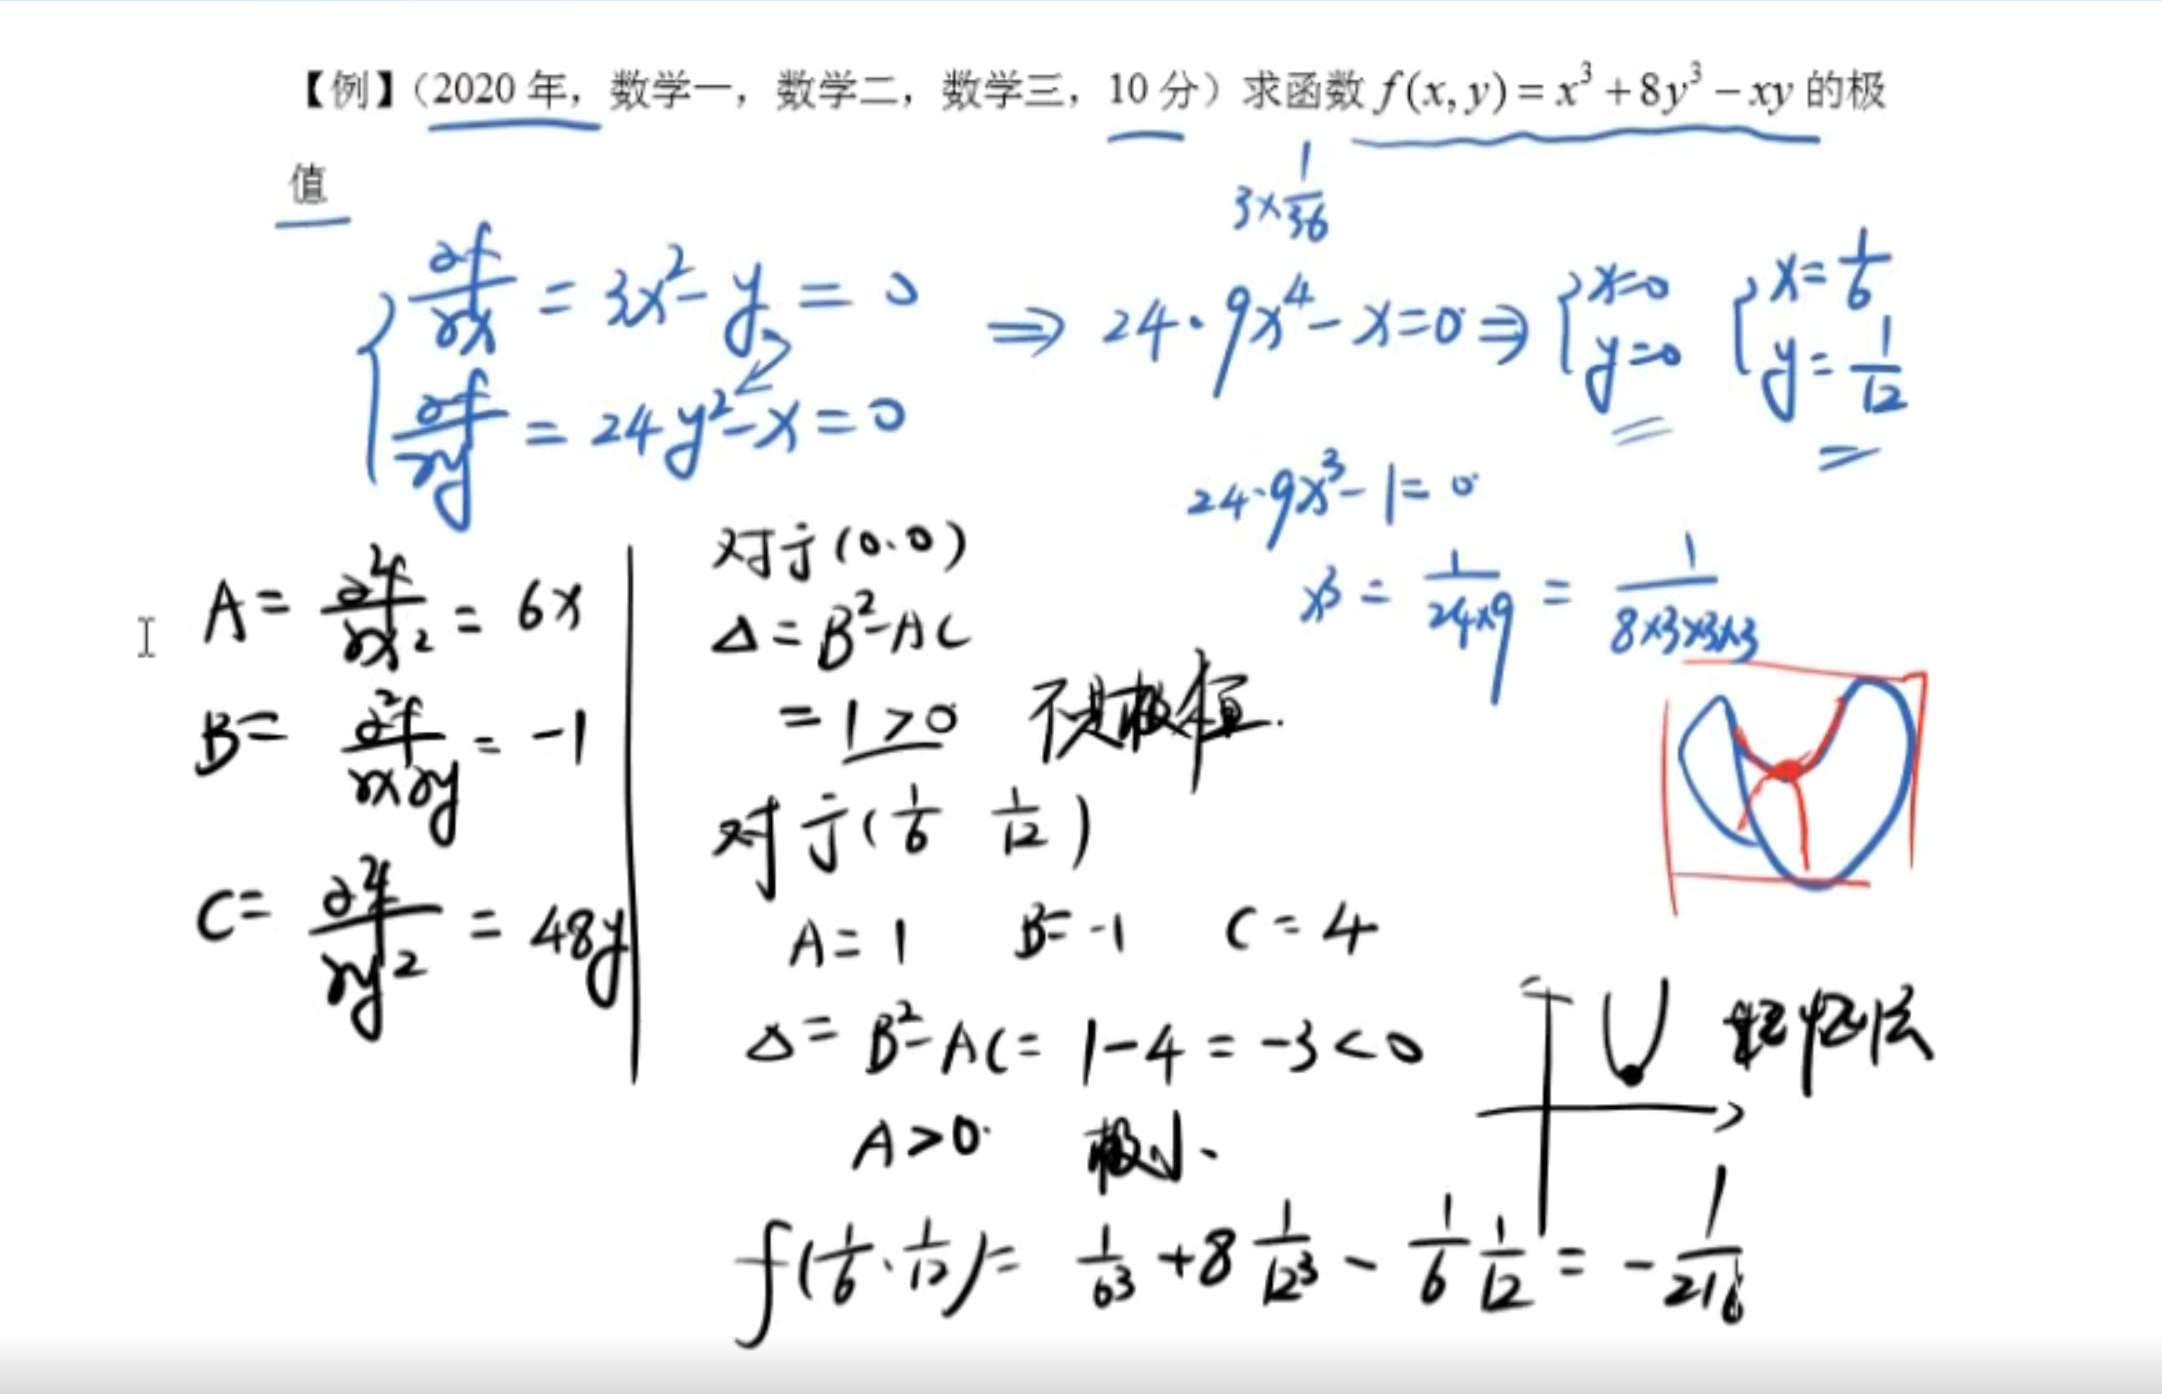 【例】（2020 年，数学一，数学二，数学三，10 分）求函数 f(x, y) = x³ + 8y³ − xy 的极
值
3×1/36
{ ∂f/∂x = 3x² − y = 0
∂f/∂y = 24y² − x = 0
⇒ 24·9x⁴ − x = 0 ⇒ { x=0 y=0 { x=1/6 y=1/12
24·9x³ − 1 = 0
x³ = 1/(24×9) = 1/(8×3×3×3)
A = ∂²f/∂x² = 6x
B = ∂²f/∂x∂y = −1
C = ∂²f/∂y² = 48y
对于(0.0)
Δ = B²−AC
= 1 > 0 不是极值.
对于(1/6 1/12)
A = 1 B = −1 C = 4
Δ = B²−AC = 1−4 = −3 < 0
A > 0. 极小、
f(1/6·1/12) = 1/6³ + 8 1/12³ − 1/6 1/12 = −1/216